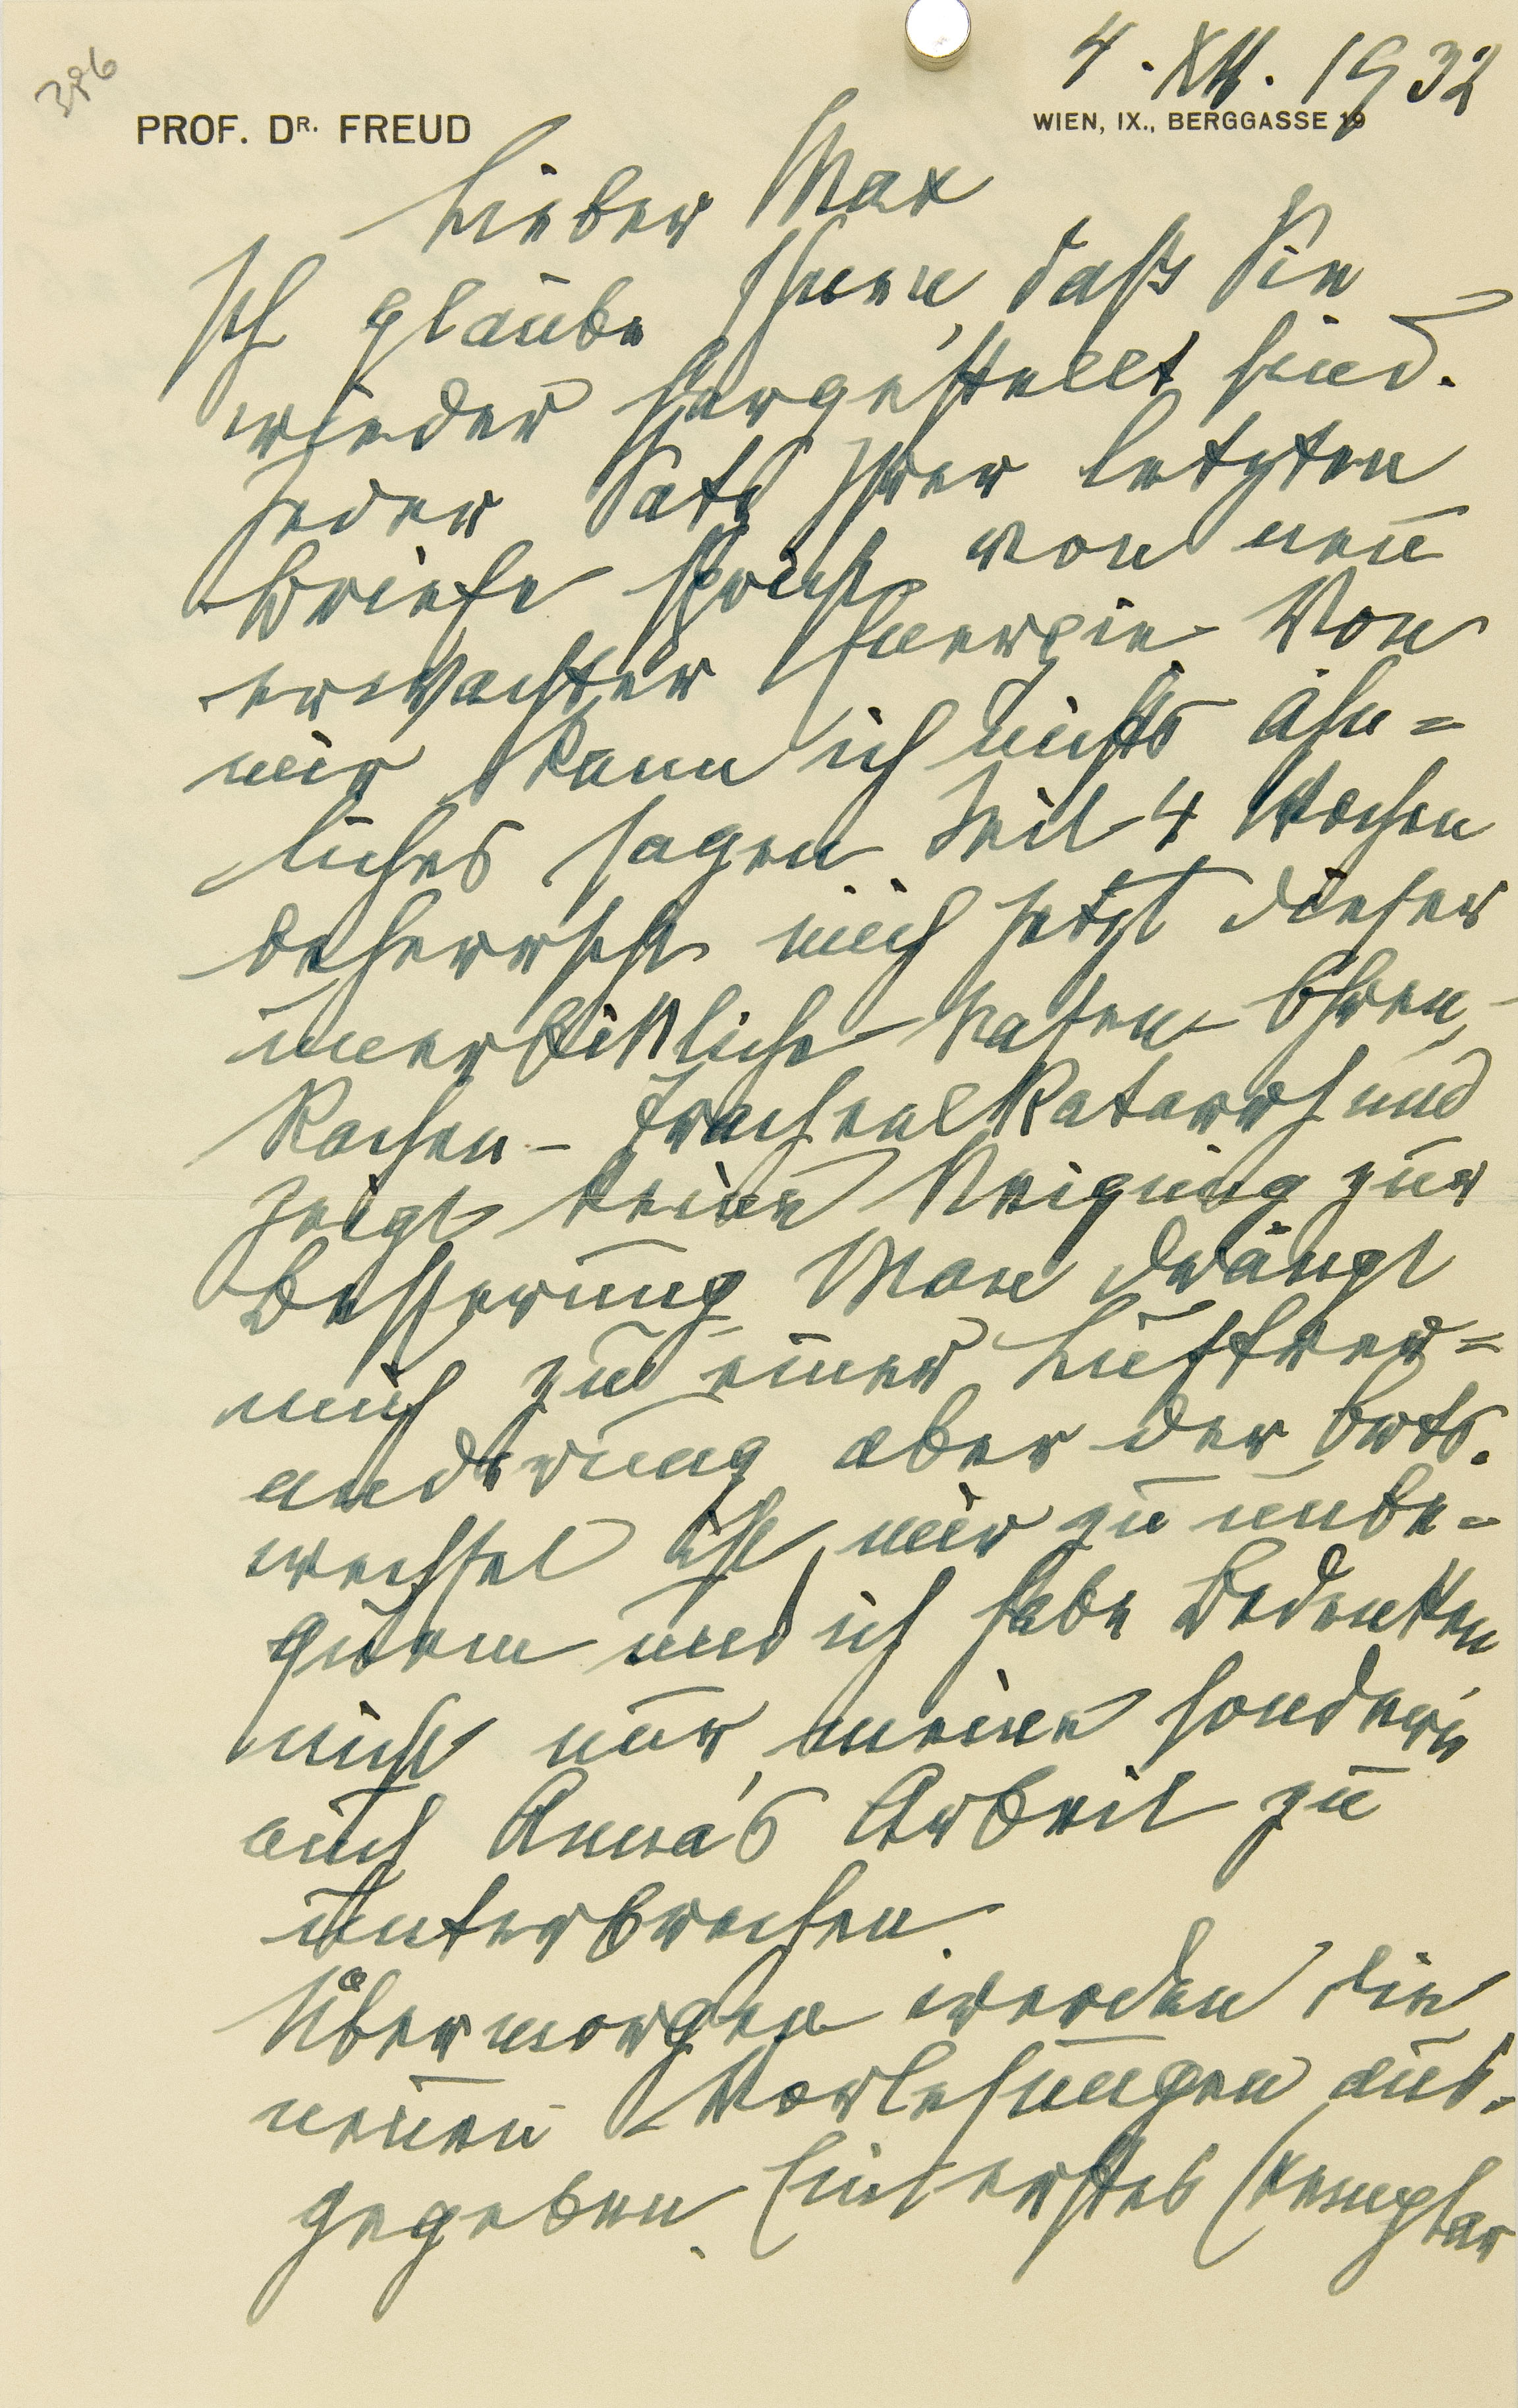 386
4. XII. 1932
PROF. DR. FREUD
WIEN, IX., BERGGASSE 19
Lieber Max
Ich glaube Ihnen, daß Sie
wieder hergestellt sind.
Jeder Satz Ihrer letzten
Briefe spricht von neu
erwachter Energie. Von
mir kann ich nichts ähn=
liches sagen. Seit 4 Wochen
beherrscht mich jetzt dieser
unerbittliche Nasen- Ohren,-
Rachen- Trachealkatarrh und
zeigt keine Neigung zur
Besserung. Man drängt
mich zu einer Luftver=
änderung aber der Orts-
wechsel ist mir zu unbe=
quem und ich habe Bedenken
nicht nur meine sondern
auch Anna's Arbeit zu
unterbrechen.
Übermorgen werden die
neuen Vorlesungen aus-
gegeben. Ein erstes Exemplar